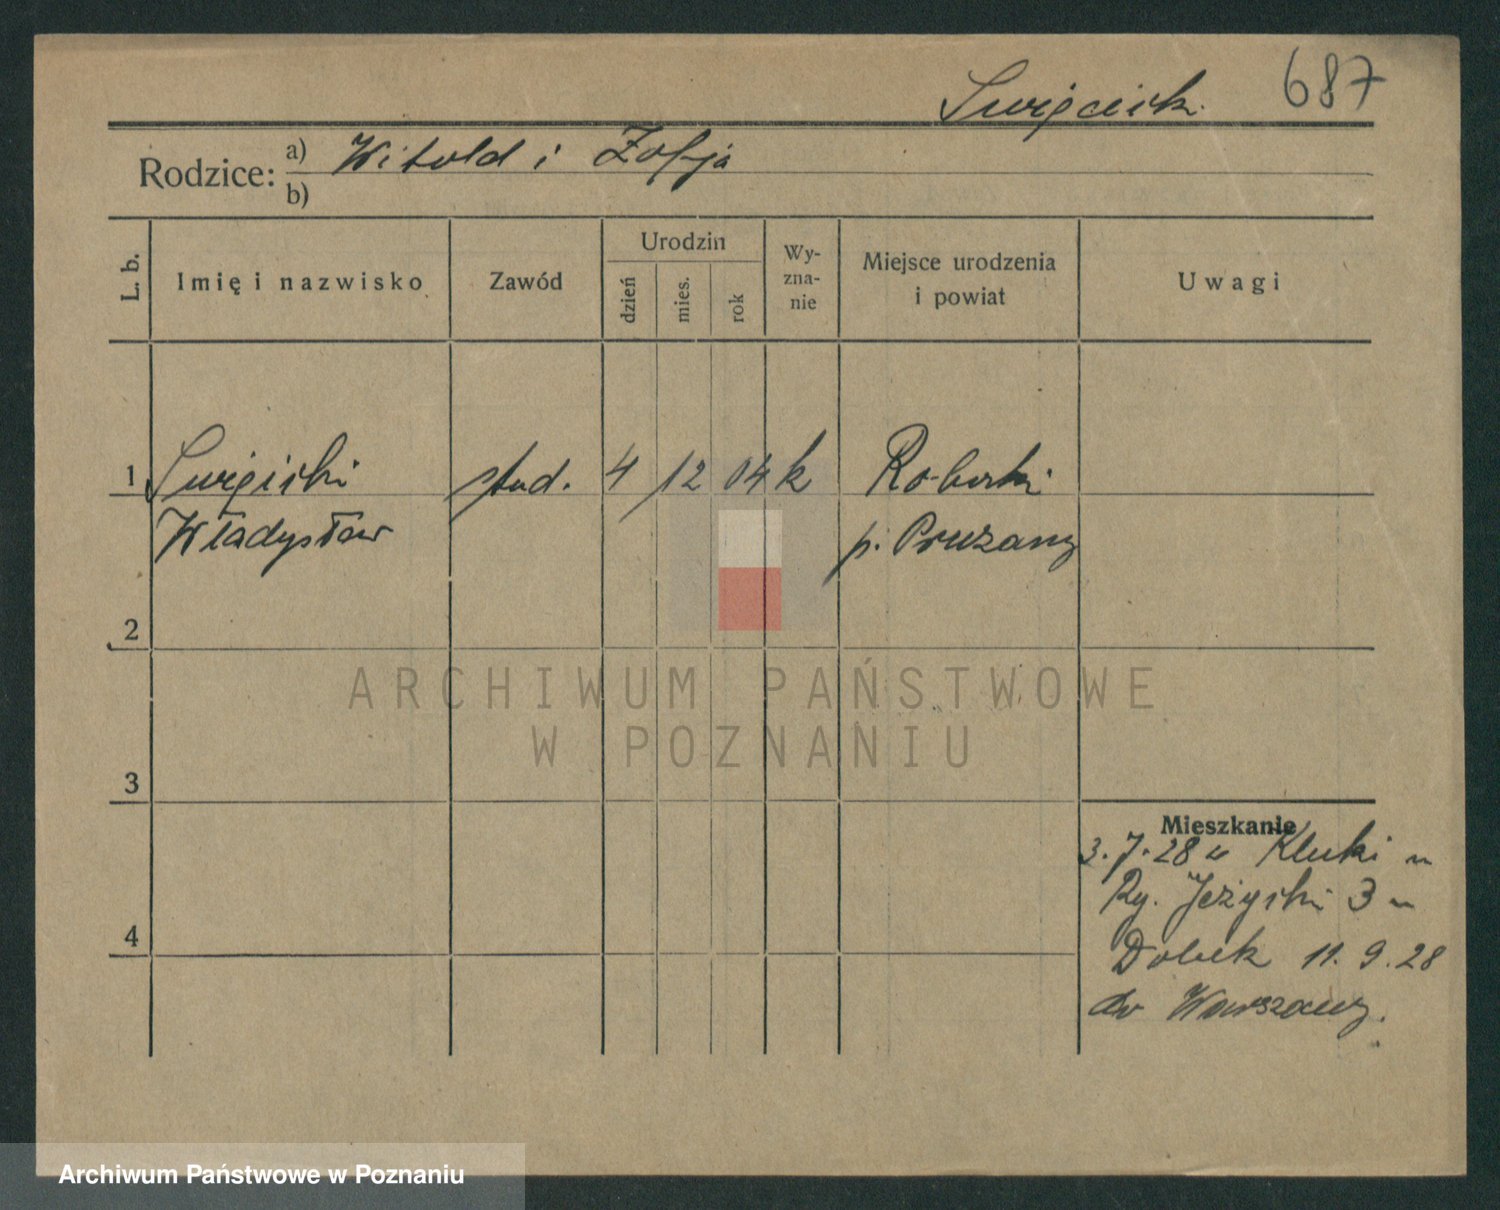 687
Rodzice: a) Witold i Zofja
b)
L. b. Imię i nazwisko Zawód Urodzin dzień mies. rok Wy-zna-nie Miejsce urodzenia i powiat Uwagi
1 stud. 4 12 04 k
Władysław p. Prużany
2
ARCHIWUM PAŃSTWOWE
W POZNANIU
3
Mieszkanie
3.7.28 Kluki
4 Ry. Jeżycki 3
Dolsk 11.9.28
do Warszawy.
Archiwum Państwowe w Poznaniu